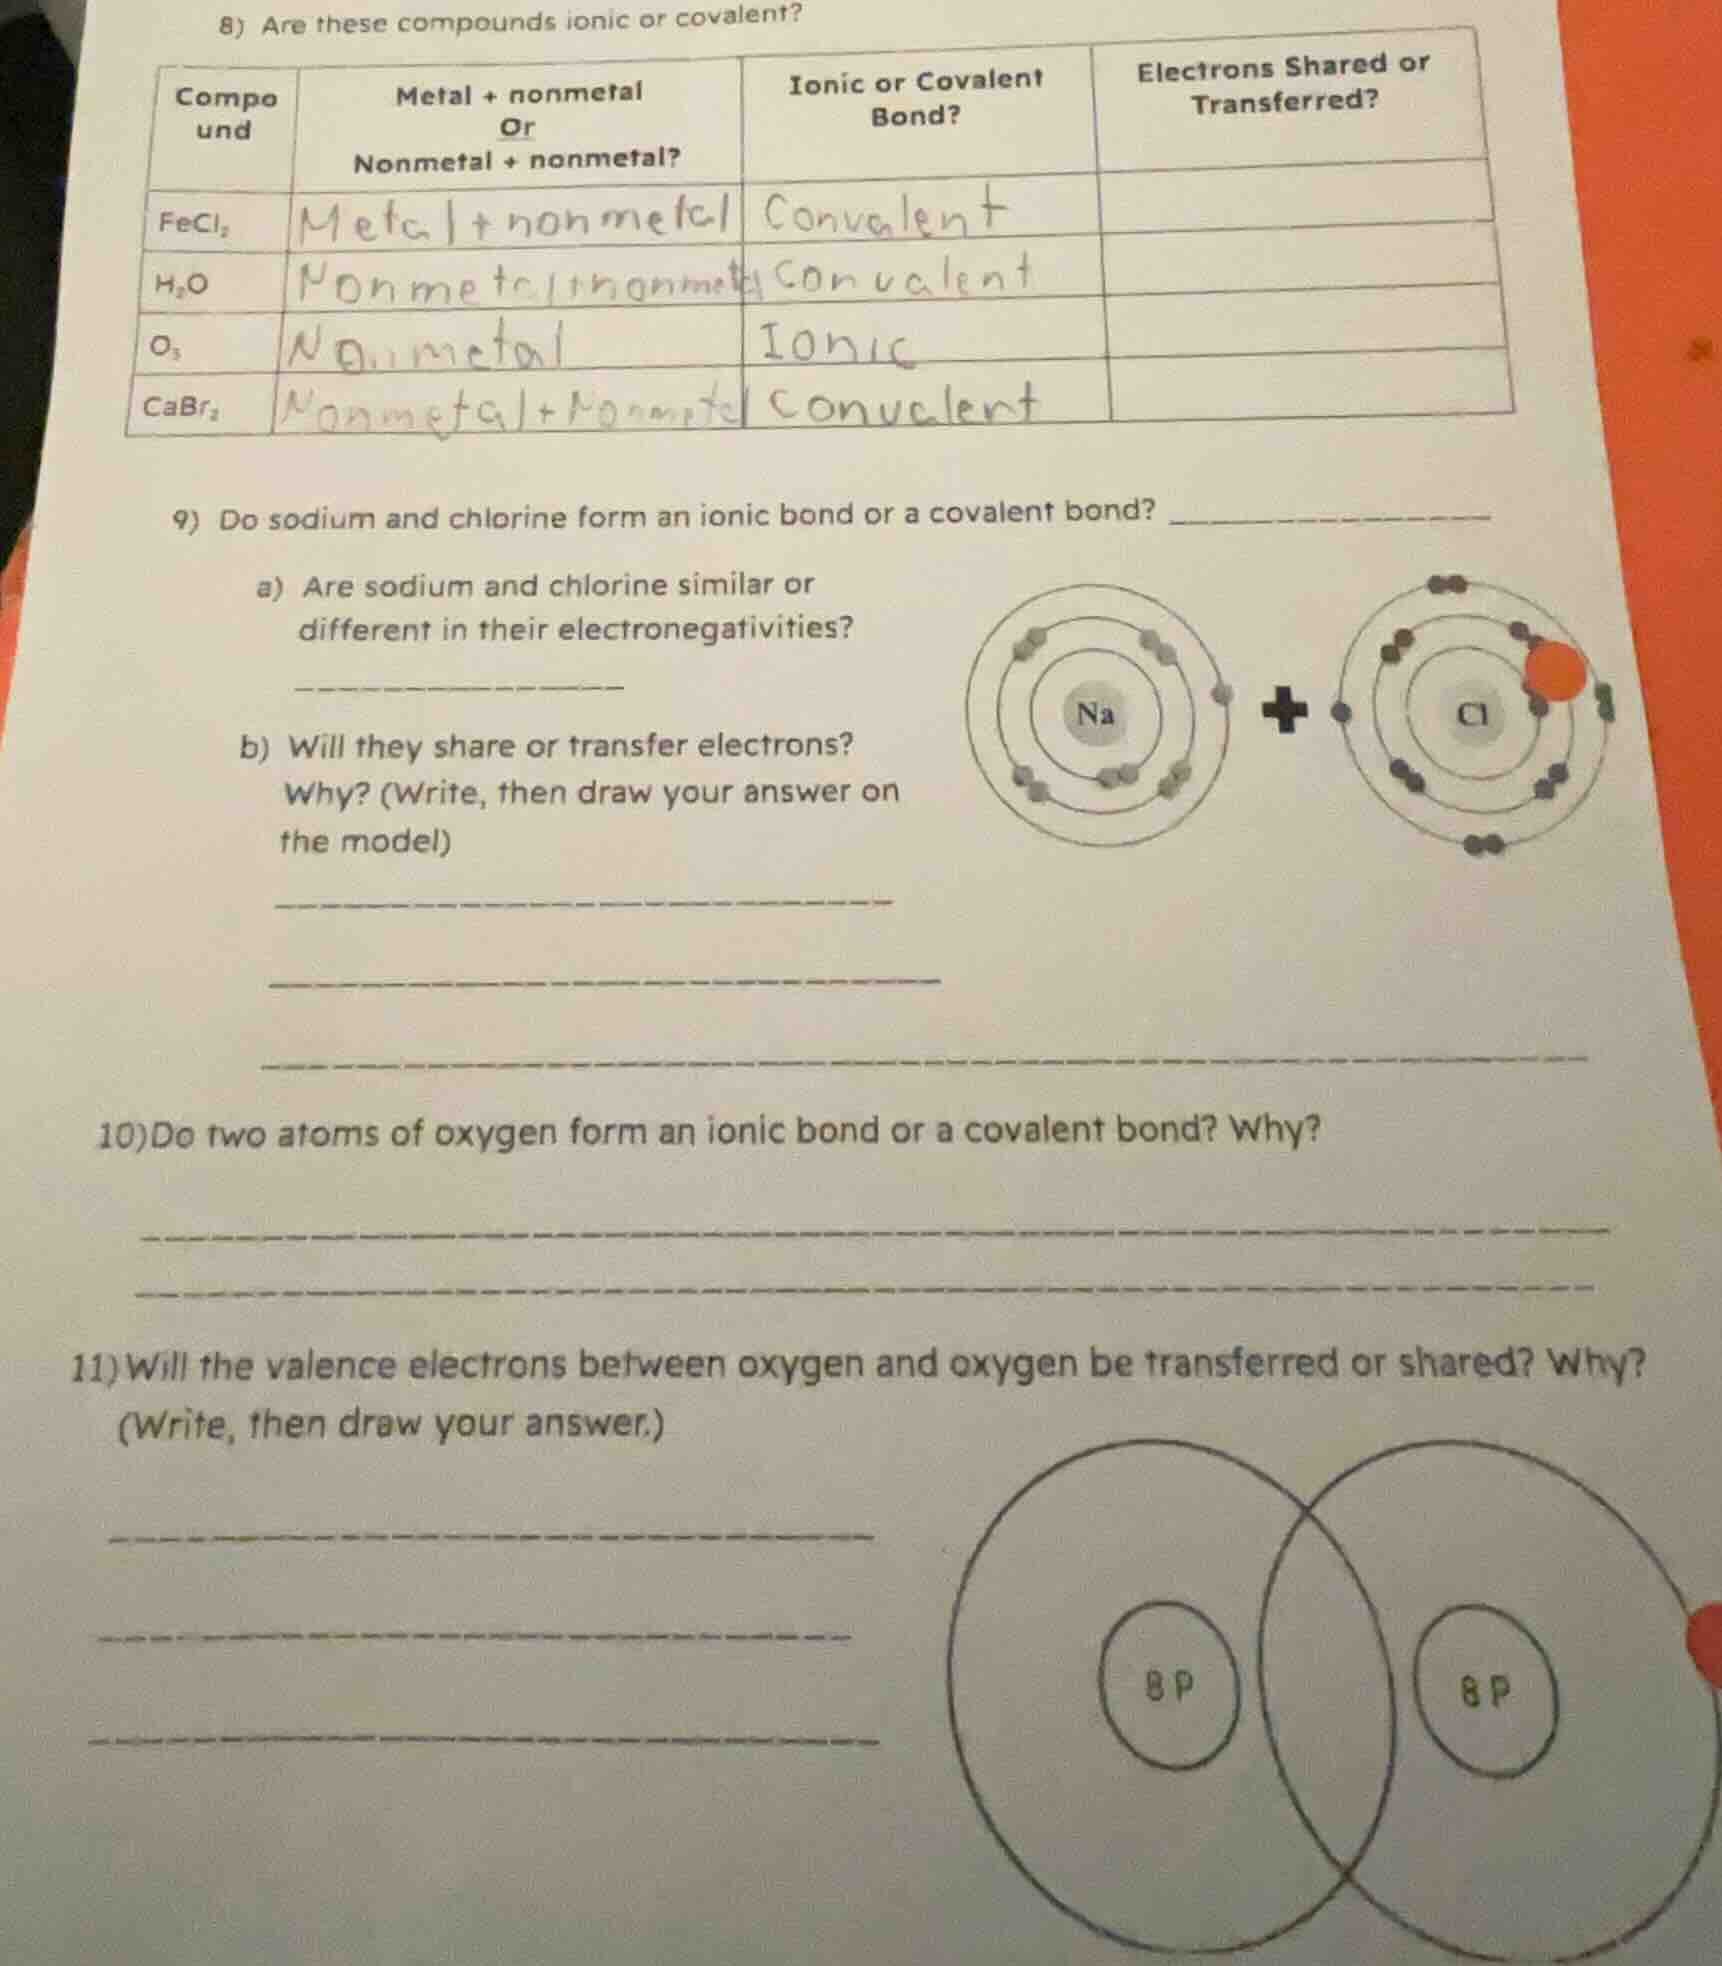 8) Are these compounds ionic or covalent?
Compo
und
Metal + nonmetal
Or
Nonmetal + nonmetal?
Ionic or Covalent
Bond?
Electrons Shared or
Transferred?
FeCl₂ Metal + nonmetal Convalent
H₂O Nonmetal + nonmetal Convalent
O₃ Nonmetal Ionic
CaBr₂ Nonmetal + Nonmetal Convalent
9) Do sodium and chlorine form an ionic bond or a covalent bond?
a) Are sodium and chlorine similar or
different in their electronegativities?
b) Will they share or transfer electrons?
Why? (Write, then draw your answer on
the model)
Na + Cl
10)Do two atoms of oxygen form an ionic bond or a covalent bond? Why?
11) Will the valence electrons between oxygen and oxygen be transferred or shared? Why?
(Write, then draw your answer.)
8 P 8 P